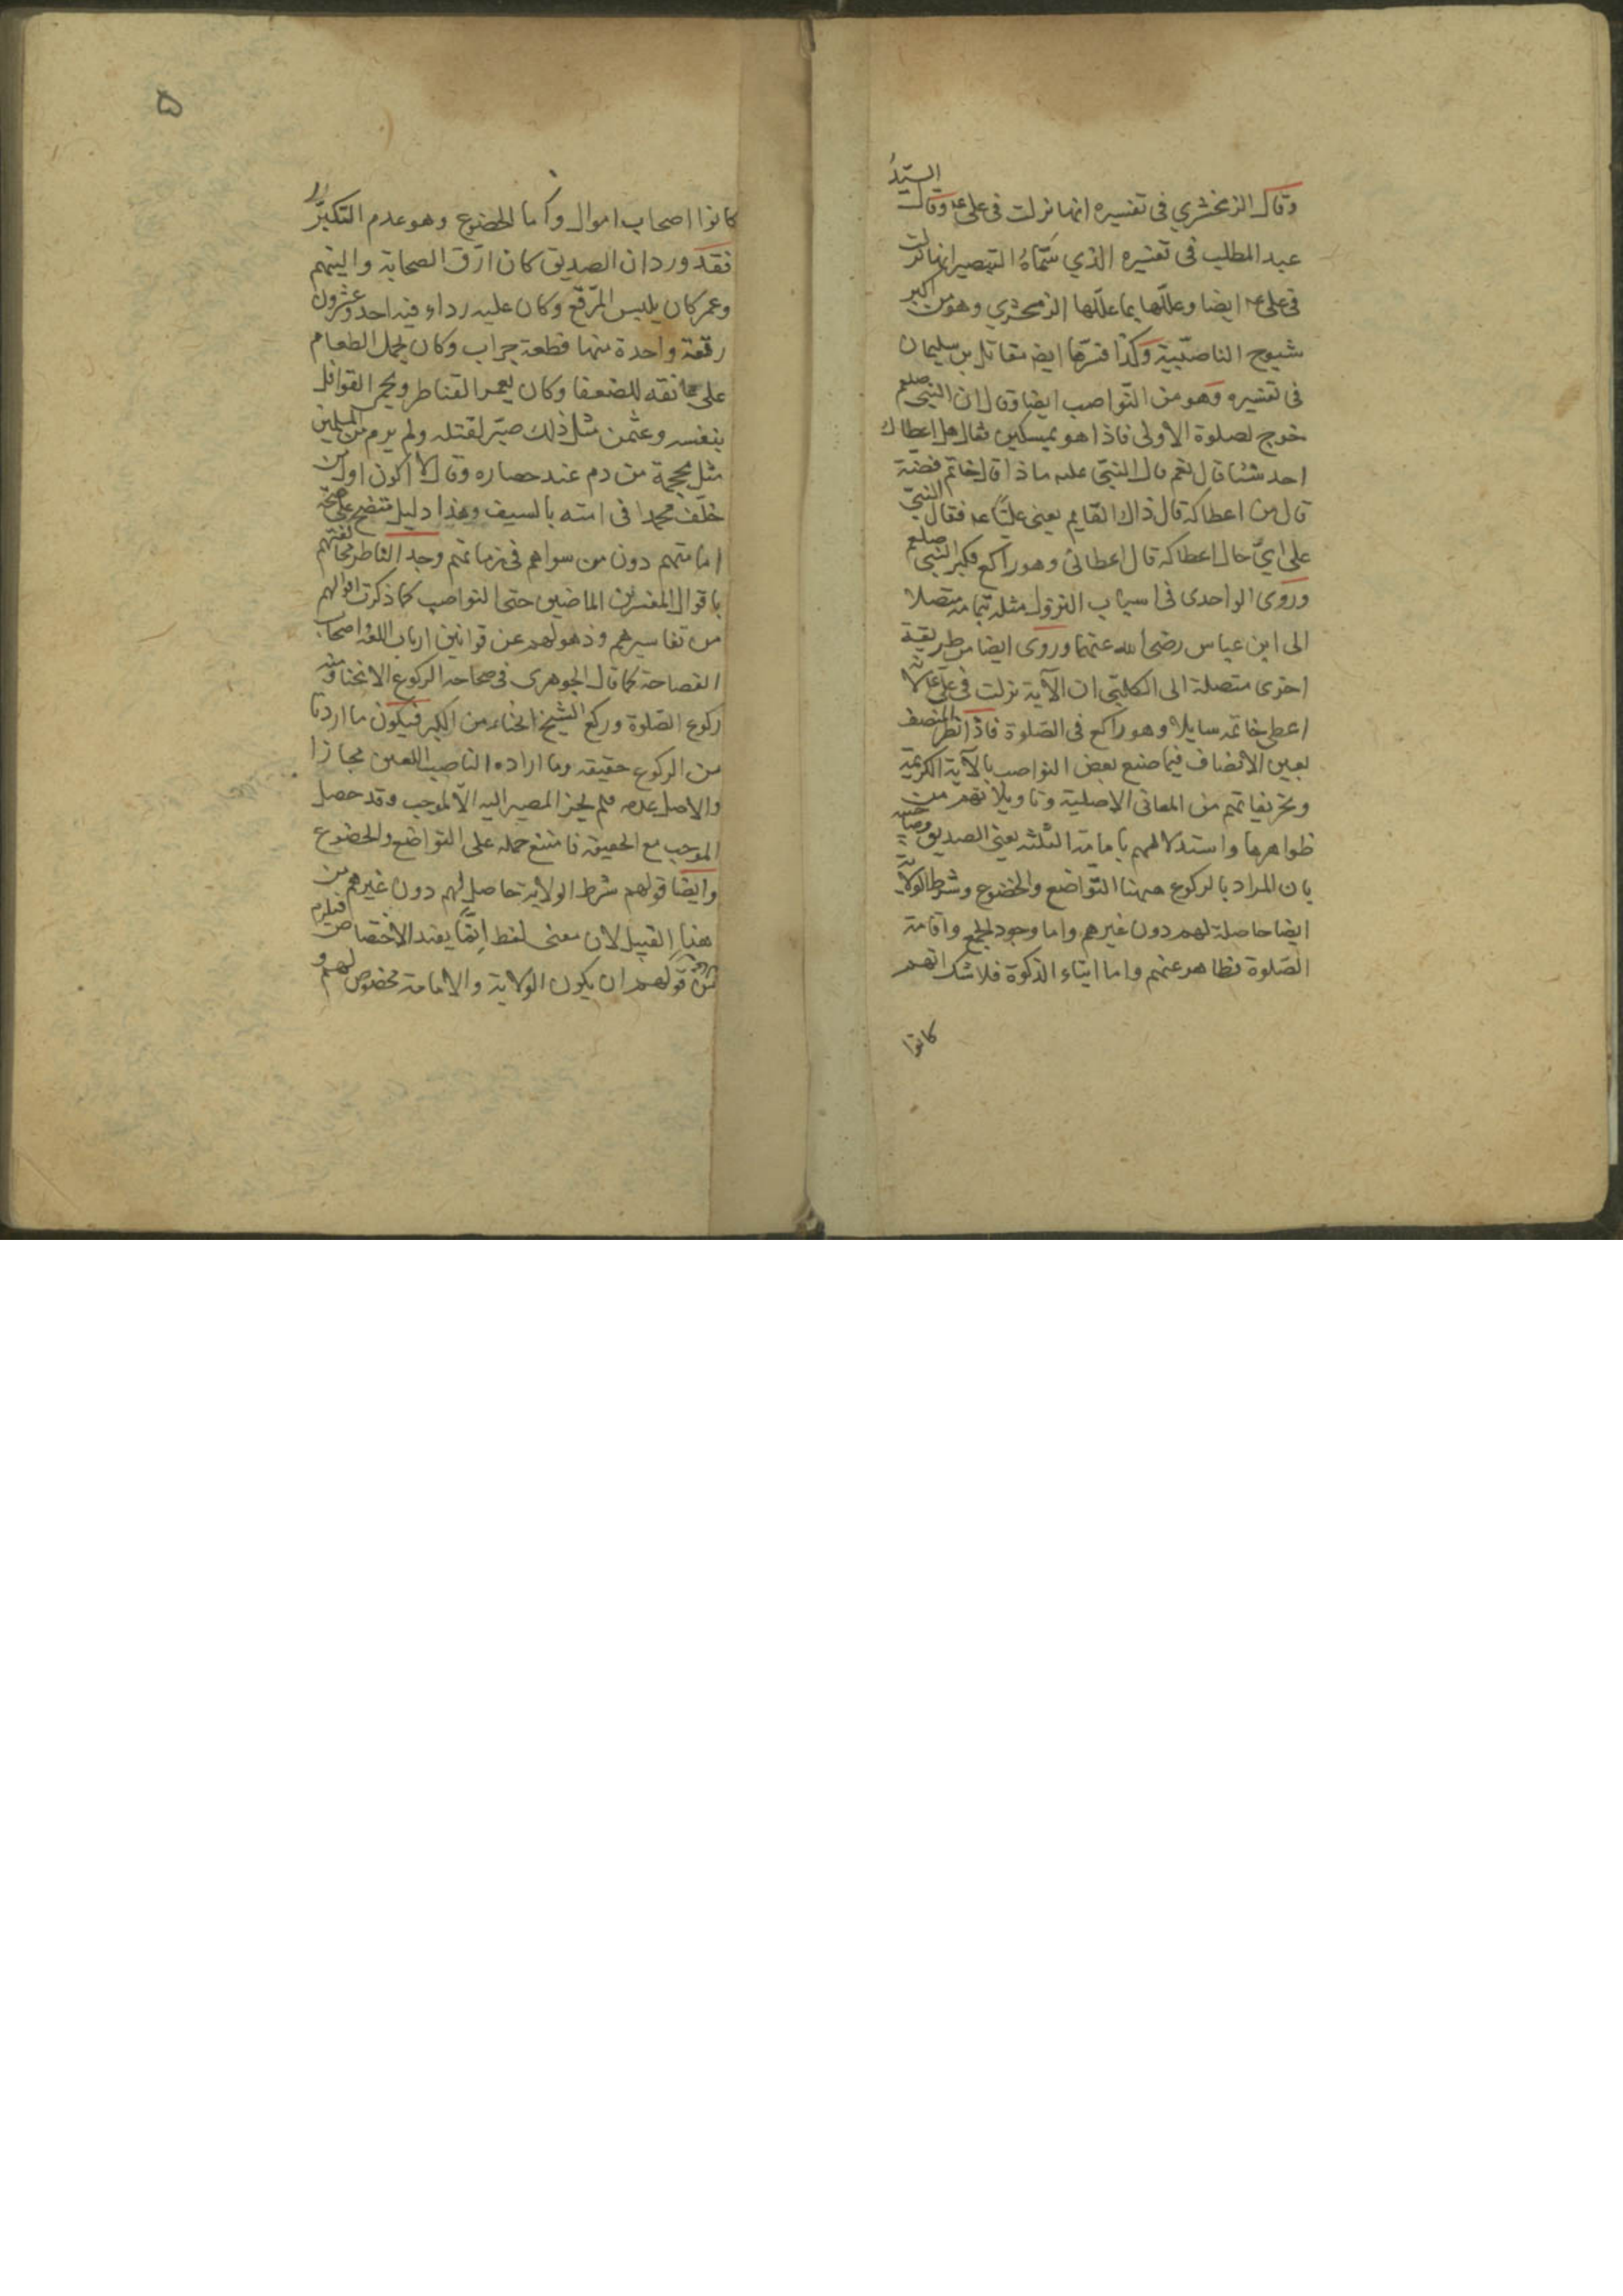 وقال الزمخشري فى تفسيره انها نزلت فى على عه وقال السيّدُ
عبد المطلب فى تفسيره الذي سَمّاهُ التبصير انها نزلت
فى على عه ايضا وعلّلها بما علّلها الزمخشري وهو من اكبر
شيوخ الناصبّيية وكذا فسّرها ايضا مقاتل بن سليمان
فى تفسيره وهو من النّواصب ايضا وقال ان النبي صلعم
خرج لصلوة الاولى فاذا هو بمسكين فقال هل اعطاك
احد شئا قال نعم قال النبى عليه ماذا قال خاتم فضة
قال من اعطاكه قال ذاك القايم يعنى عليّا عه فقال النبيّ
على ايّ حال اعطاكه قال اعطانى وهو راكع فكبر النبي صلعم
وروى الواحدى فى اسباب النزول مثله بتمامه متصلا
الى ابن عباس رضى الله عنهما وروى ايضا من طريقة
اخرى متصلة الى الكلبّى ان الآية نزلت فى على عه لانه
اعطى خاتمه سايلا وهو راكع فى الصّلوة فاذا نظر المنصف
بعين الانصاف فيما صنع بعض النواصب بالآية الكريمة
وتحريفاتهم من المعانى الاصلية وتاويلاتهم من
ظواهرها واستدلالهم بامامة الثلثه يعنى الصديق وصاحبيه
بان المراد بالركوع ههنا التّواضع والخضوع وشرط الولاية
ايضا حاصلة لهم دون غيرهم واما وجود الجمع واقامة
الصّلوة فظاهر عنهم واما ايتاء الزكوة فلاشك انهم
كانوا
۵
كانوا اصحاب اموال وأما الخضوع وهو عدم التكبرّ
فقد ورد ان الصديق كان ارّق الصحابة والينهم
وعمر كان يلبس المرّقع وكان عليه رداء فيه احد وعشرون
رقعة واحدة منها قطعة جراب وكان يحمل الطعام
على عاتقه للضعفا وكان يعمر القناطر ويحمى القوافل
بنفسه وعثمن مثل ذلك صبّر لقتله ولم يرم من المسلمين
مثل محجمة من دم عند حصاره وقال لا اكون اول من
خلف محمدا فى امته بالسيف وهذا دليل متضح على صحّة
امامتهم دون من سواهم فى زمانهم وجد الناظر مخالفتهم
باقوال المفسرين الماضين حتى النواصب كما ذكرت اقوالهم
من تفاسيرهم وذهولهم عن قوانين ارباب اللغة واصحاب
الفصاحة كما قال الجوهرى فى صحاحه الركوع الانحنا ومنه
ركوع الصّلوة وركع الشيخ انحناء من الكبر فيكون ما اردنا
من الركوع حقيقة وما اراده الناصب اللعين مجازا
والاصل عدمه فلم يجز المصير اليه الّا لموجب وقد حصل
الموجب مع الحقيقة فامتنع حمله على التواضع والخضوع
وايضا قولهم شرط الولاية حاصل لهم دون غيرهم من
هذا القبيل لان معنى لفظ انمّا يفيد الاختصاص فيلزم
من قولهم ان يكون الولاية والامامة مخصوص لهم و